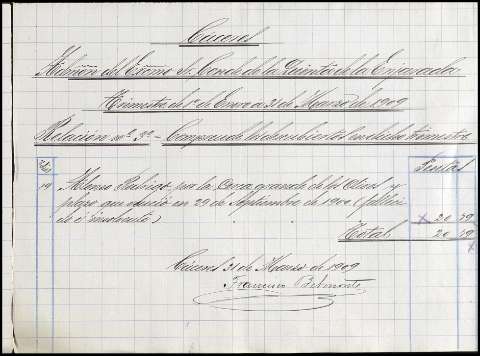 Cáceres
Admon del Excmo Sr. Conde de la Quinta de la Enjarada
Trimestre de 1º de Enero a 31 de Marzo de 1909
Relación nº 3º - Comprende de descubiertos en dicho trimestre
Pesetas
19 Alonso Rubiega por la Cerca grande de los Olivos y
plazo que venció en 29 de Septiembre de 1900 (falleci-
do é insolvente) 20 79
Total 20 79
Cáceres 31 de Marzo de 1909
Francisco Belmonte